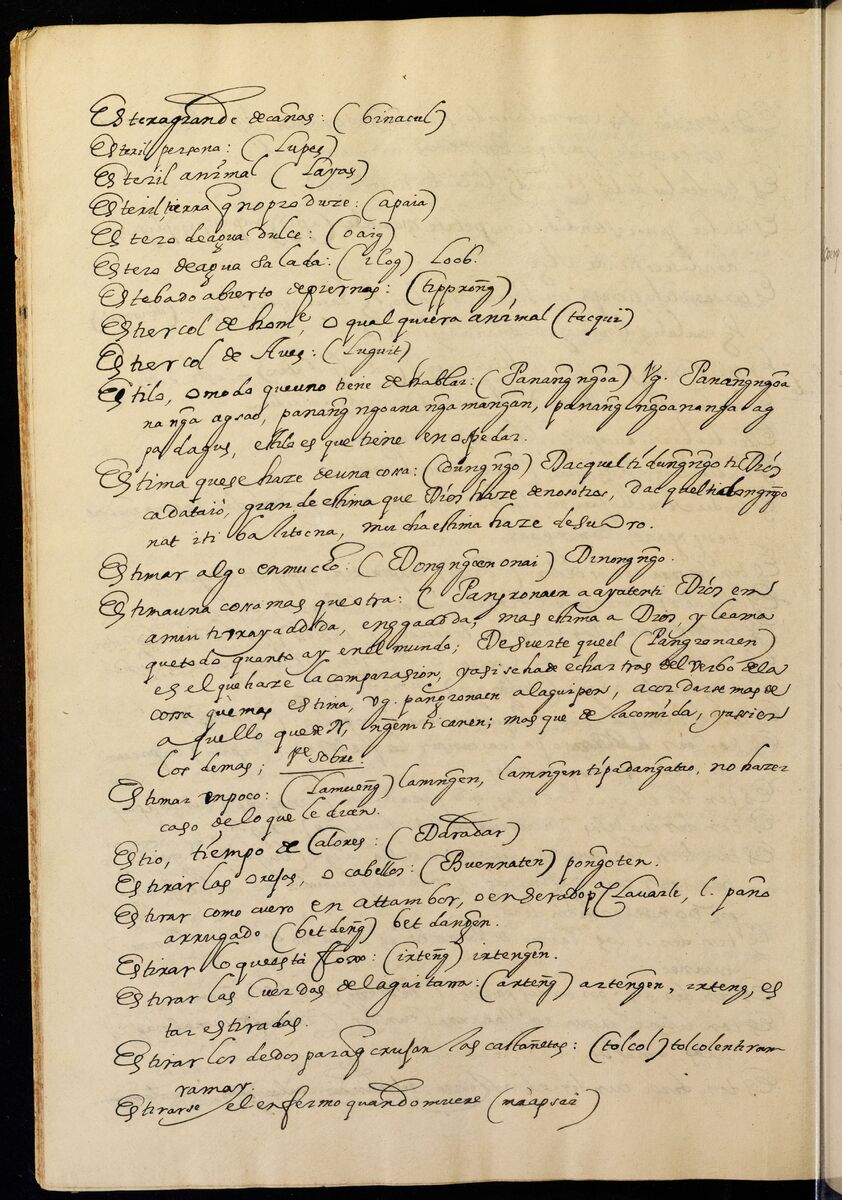 Estera grande de cañas: (binacul)
Esteril persona: (Lupes)
Esteril animal (Layas)
Esteril, tierra q no produze: (apaia)
Estero de agua dulce: (oaig)
Estero de agua salada: (ilog) Loob.
Estebado abierto de piernas: (tipprong̃)
Estiercol de homᵉ, o qual quiera animal (tacqui)
Estiercol de Aues: (Luguit)
Estilo, o modo que uno tiene de hablar: (Panang̃ ngoa) Vg. Panang̃ngoa
na nga agsao, panang̃ ngoana nga mangan, panang̃ ngoa na nga ag
padagus, estilo es que tiene en ospedar.
Estima que se haze de una cosa: (dung̃ ngo) Dacquel ti dung̃ngo ti Dios
cadataió, grande estima que Dios haze de nosotros, dacquel ti dongngo
nat iti balitocna, mucha estima haze de su Oro.
Estimar algo en mucho: (Dong ngoen onai) Dinong ngo.
Estima una cosa mas que otra: (Pangronaen a ayaten ti Dios em
amin ti rayad dida, eng̃gadida, mas estima a Dios, y le ama
que todo quanto ay en el mundo; De suerte que el (Pangronaen)
es el que haze la comparasion, y asi se ha de echar tras del verbo de la
cosa que mas estima, vg. pangronaen a laguipen, acordarse mas de
aquello que de N, ngem ti canen; mas que de la comida, y assi en
los demas; Vᵉ sobre
Estimar en poco: (Lamueng̃) lamngen, lamngen ti padangatao, no hazer
caso de lo que le dicen.
Estio, tiempo de Calores: (Daradar)
Estirar las Orejas, o cabellos: (Buennaten) pongoten.
Estirar como cuero en attambor, o enserado pᵃ Lavarle, l. paño
arrugado (betdeng̃) bet dangen.
Estirar lo que está floxo: (irteng̃) irtengen.
Estirar las Cuerdas de la guitarra: (arteng̃) artengen, irteng, es
tar estiradas.
Estirar los dedos para q crusan las castañetas: (tolcol) tolcolen ti ram
ramai.
Estirarse el enfermo quando muere (maapsai)